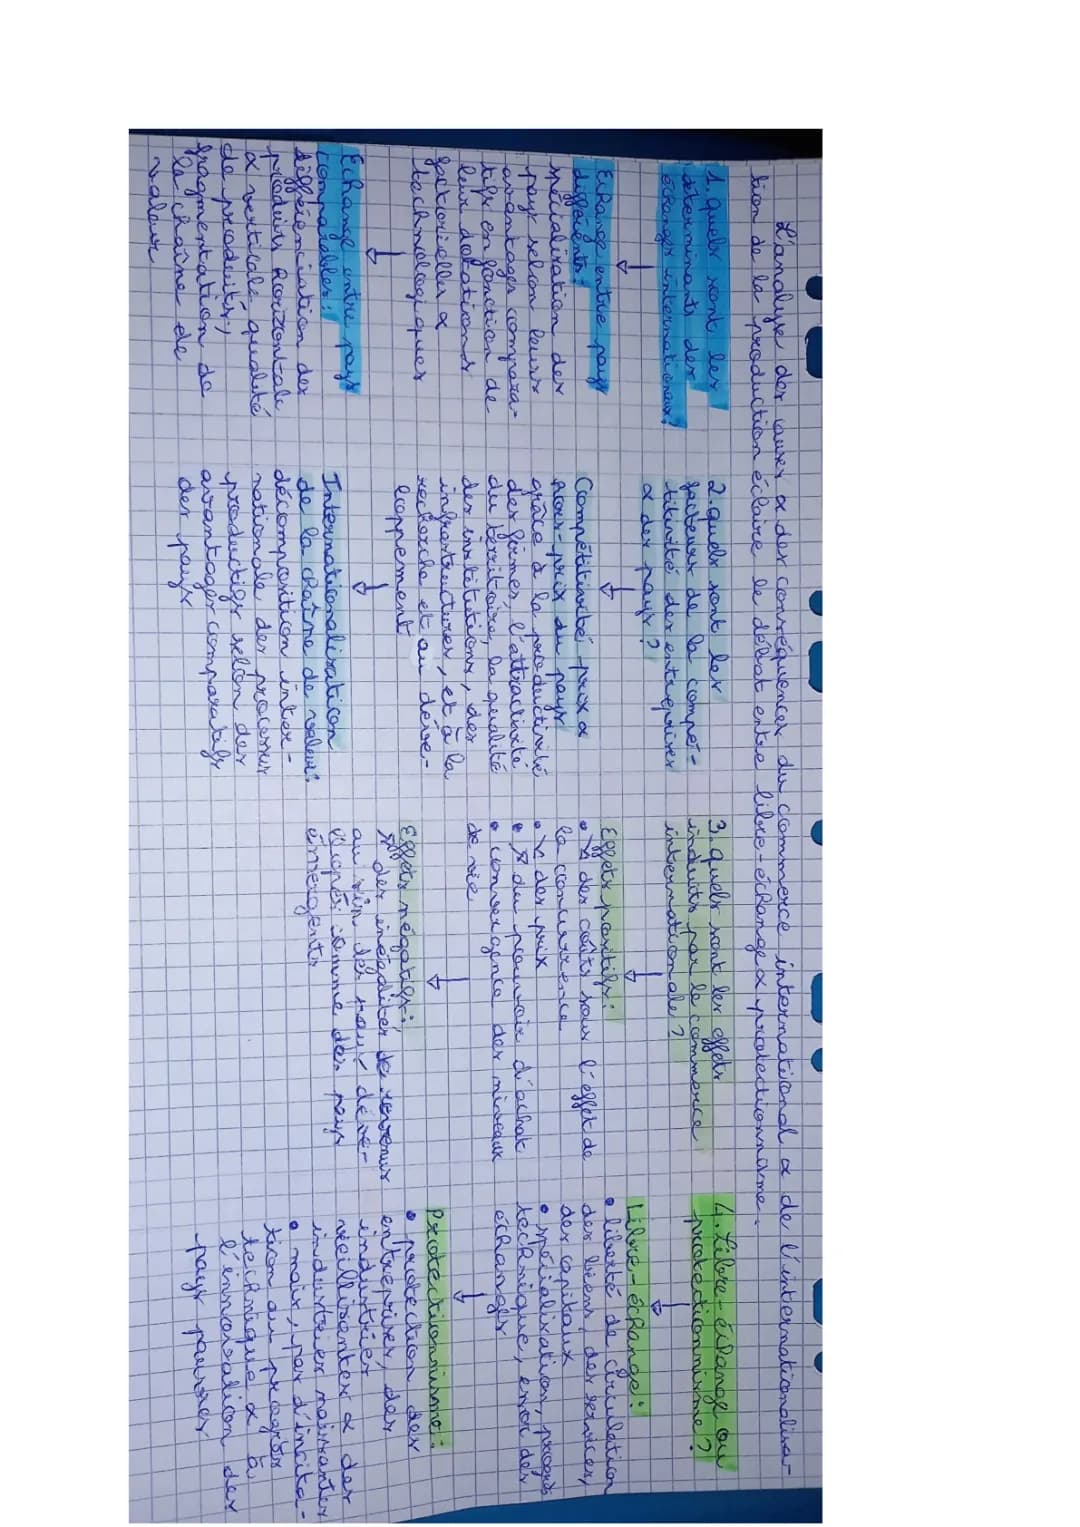 L'analyse des causes & des conséquences du commerce international & de l'internationalisa-
tion de la production éclaire le débat entre libre-échange & protectionnisme.
1. Quels sont les
déterminants des
échanges internationaux?
Echange entre pays
différents:
spécialisation des
pays selon leurs
avantages compara-
tifs en fonction de
leur dotations
factorielles &
technologiques
Echange entre pays
comparables:
différenciation des
produits horizontale
& verticale, qualité
de produits,
fragmentation de
la chaîne de
valeur
2. Quels sont les
facteurs de la compét-
titivité des entreprises
& des pays?
Compétitivité-prix &
hors-prix du pays
grâce à la productivité
des firmes, l'attractivité
du territoire, la qualité
des institutions, des
infrastructures, et à la
recherche et au déve-
loppement
Internationalisation
de la chaîne de valeur:
décomposition inter-
nationale des processus
productifs selon des
avantages comparatifs
des pays
3. Quels sont les effets
induits par le commerce
internationale?
Effets positifs:
• ↘ des coûts sous l'effet de
la concurrence
• ↘ des prix
• ↗ du pouvoir d'achat
• convergence des niveaux
de vie
Effets négatifs:
↗ des inégalités de revenus
au sein des pays déve-
loppés comme des pays
émergents
4. Libre-échange ou
protectionnisme?
Libre-échange:
• liberté de circulation
des biens, des services,
des capitaux
• spécialisation, progrès
technique, essor des
échanges
Protectionnisme:
• protection des
entreprises, des
industries
vieillissantes & des
industries naissantes
• mais, pas d'incita-
tion au progrès
technique & à
l'innovation des
pays pauvres